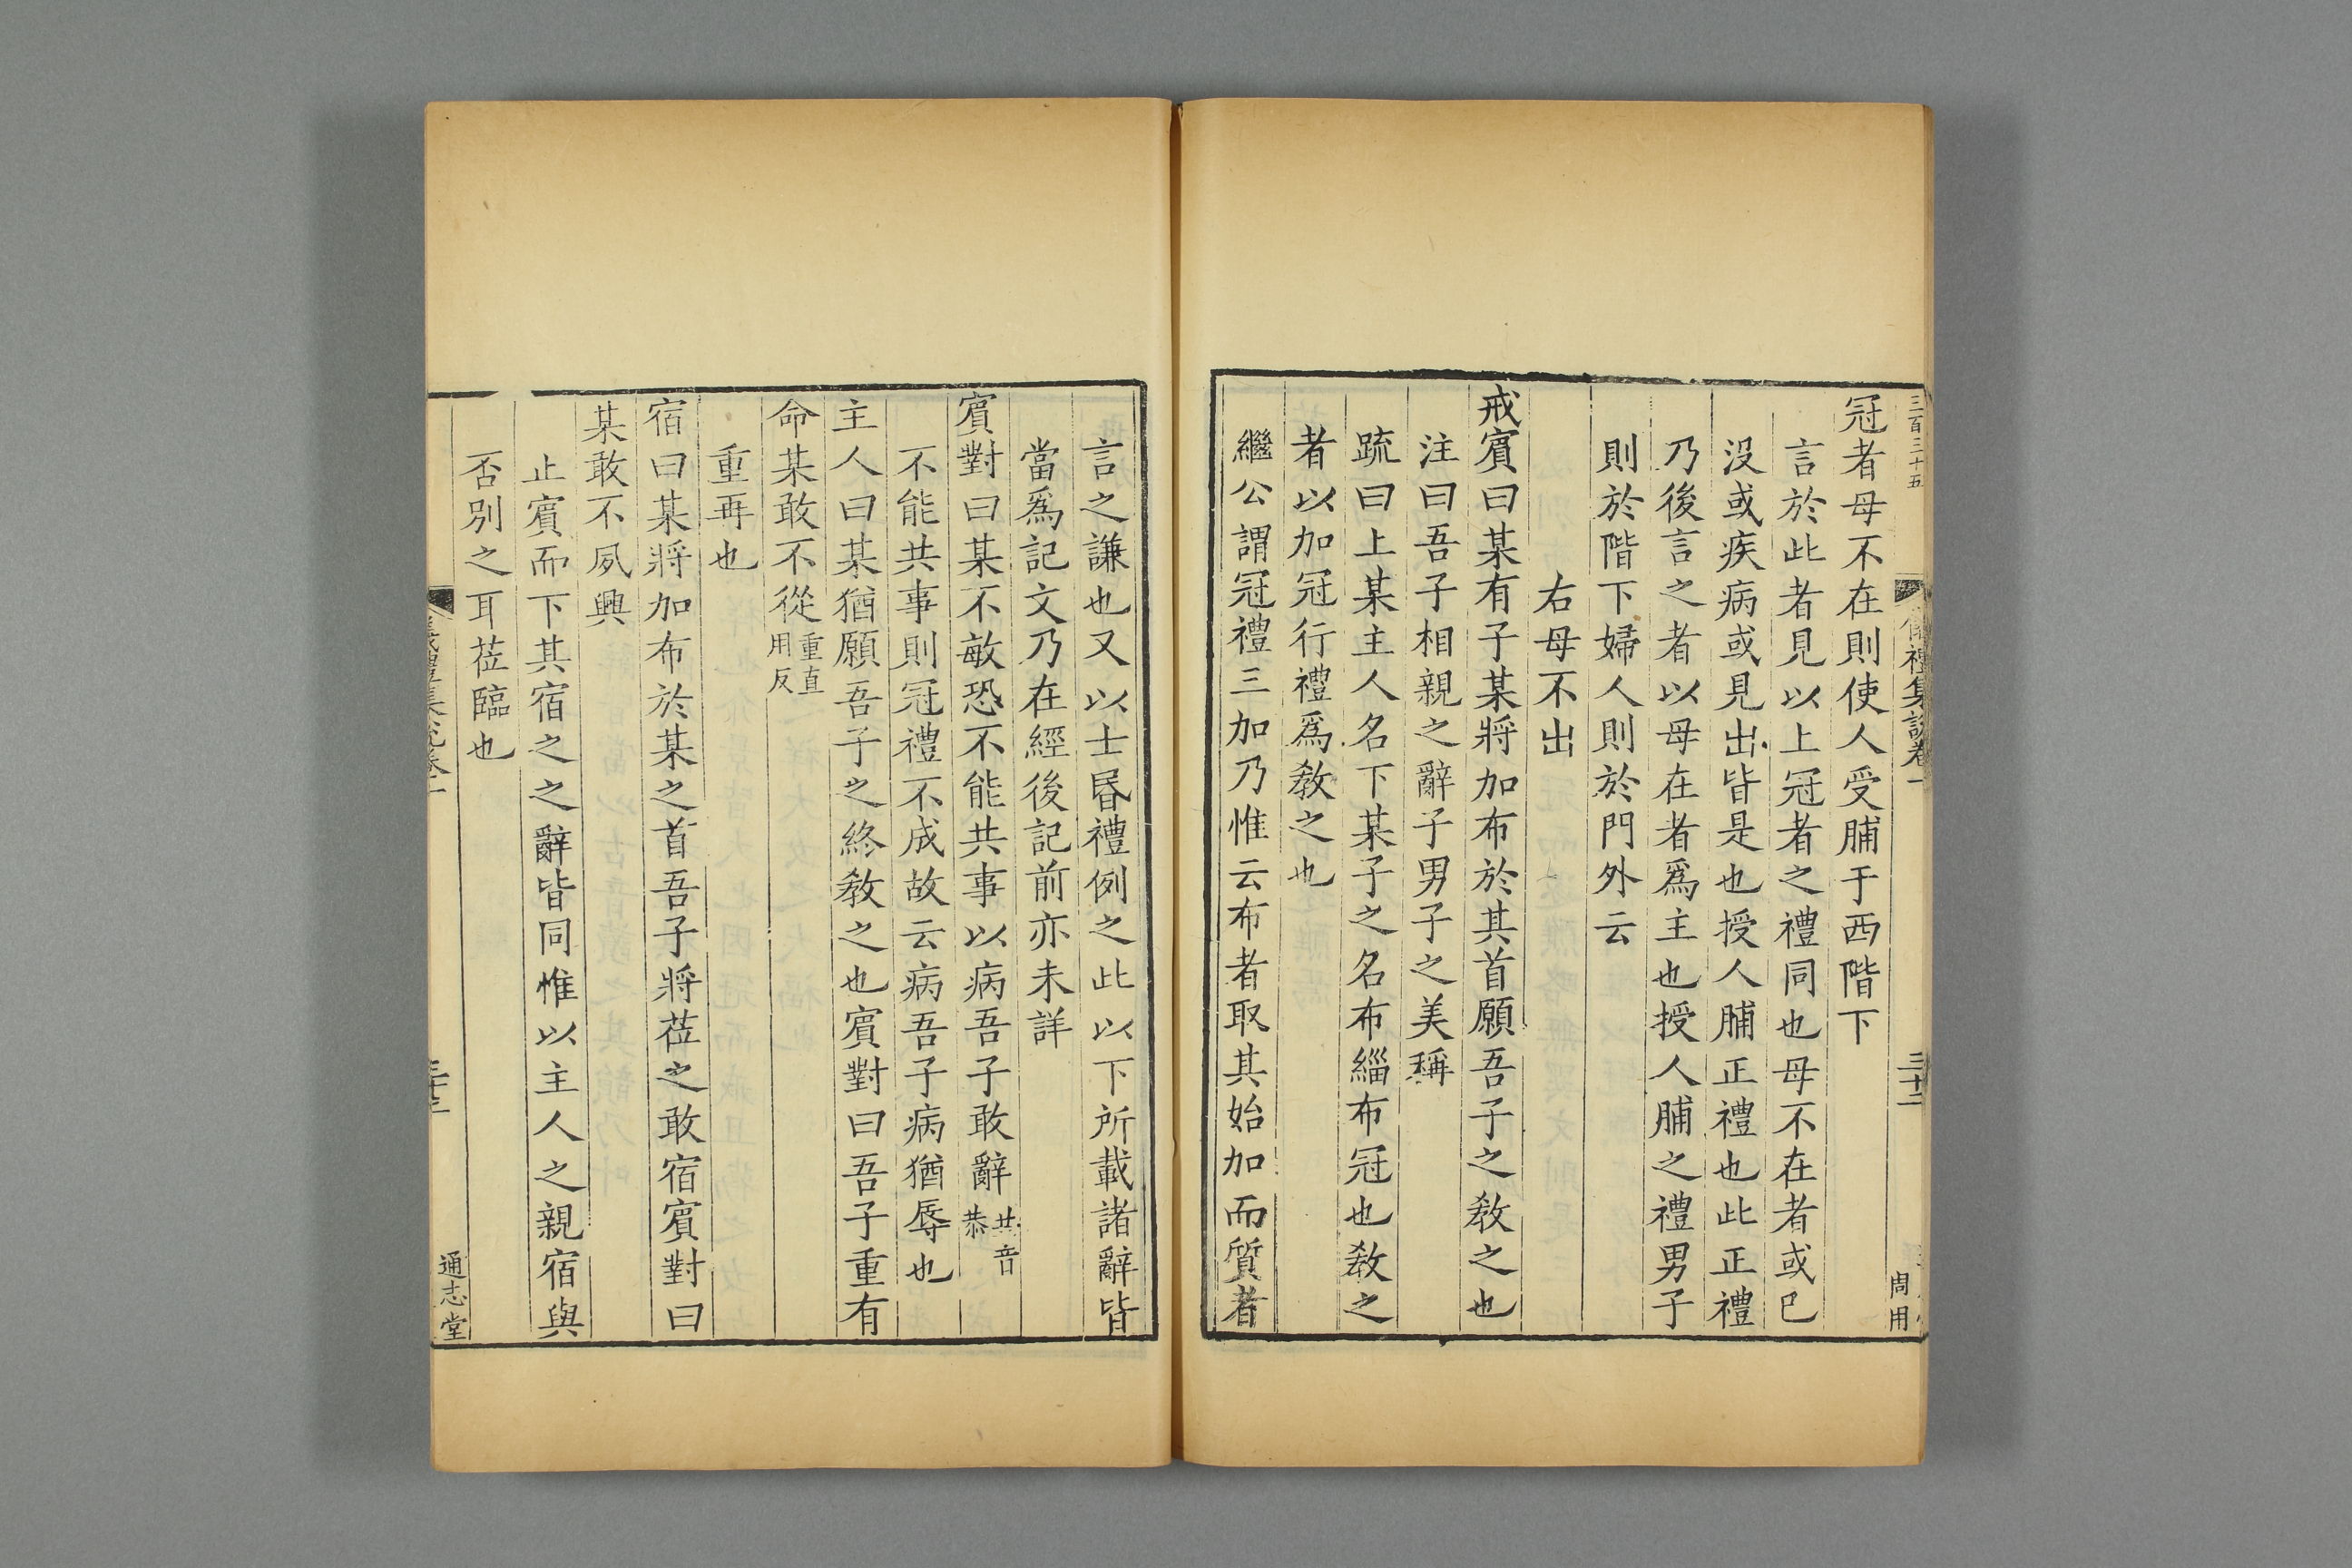 三百三十五
儀禮集說卷一
三十二
周用
冠者母不在則使人受脯于西階下
言於此者見以上冠者之禮同也母不在者或已
没或疾病或見出皆是也授人脯正禮也此正禮
乃後言之者以母在者爲主也授人脯之禮男子
則於階下婦人則於門外云
右母不出
戒賓曰某有子某將加布於其首願吾子之敎之也
注曰吾子相親之辭子男子之美稱
疏曰上某主人名下某子之名布緇布冠也敎之
者以加冠行禮爲敎之也
繼公謂冠禮三加乃惟云布者取其始加而質者
言之謙也又以士昬禮例之此以下所載諸辭皆
當爲記文乃在經後記前亦未詳
賓對曰某不敏恐不能共事以病吾子敢辭共音恭
不能共事則冠禮不成故云病吾子病猶辱也
主人曰某猶願吾子之終敎之也賓對曰吾子重有
命某敢不從重直用反
重再也
宿曰某將加布於某之首吾子將莅之敢宿賓對曰
某敢不夙興
止賓而下其宿之之辭皆同惟以主人之親宿與
否別之耳莅臨也
儀禮集說卷一
三十三
通志堂